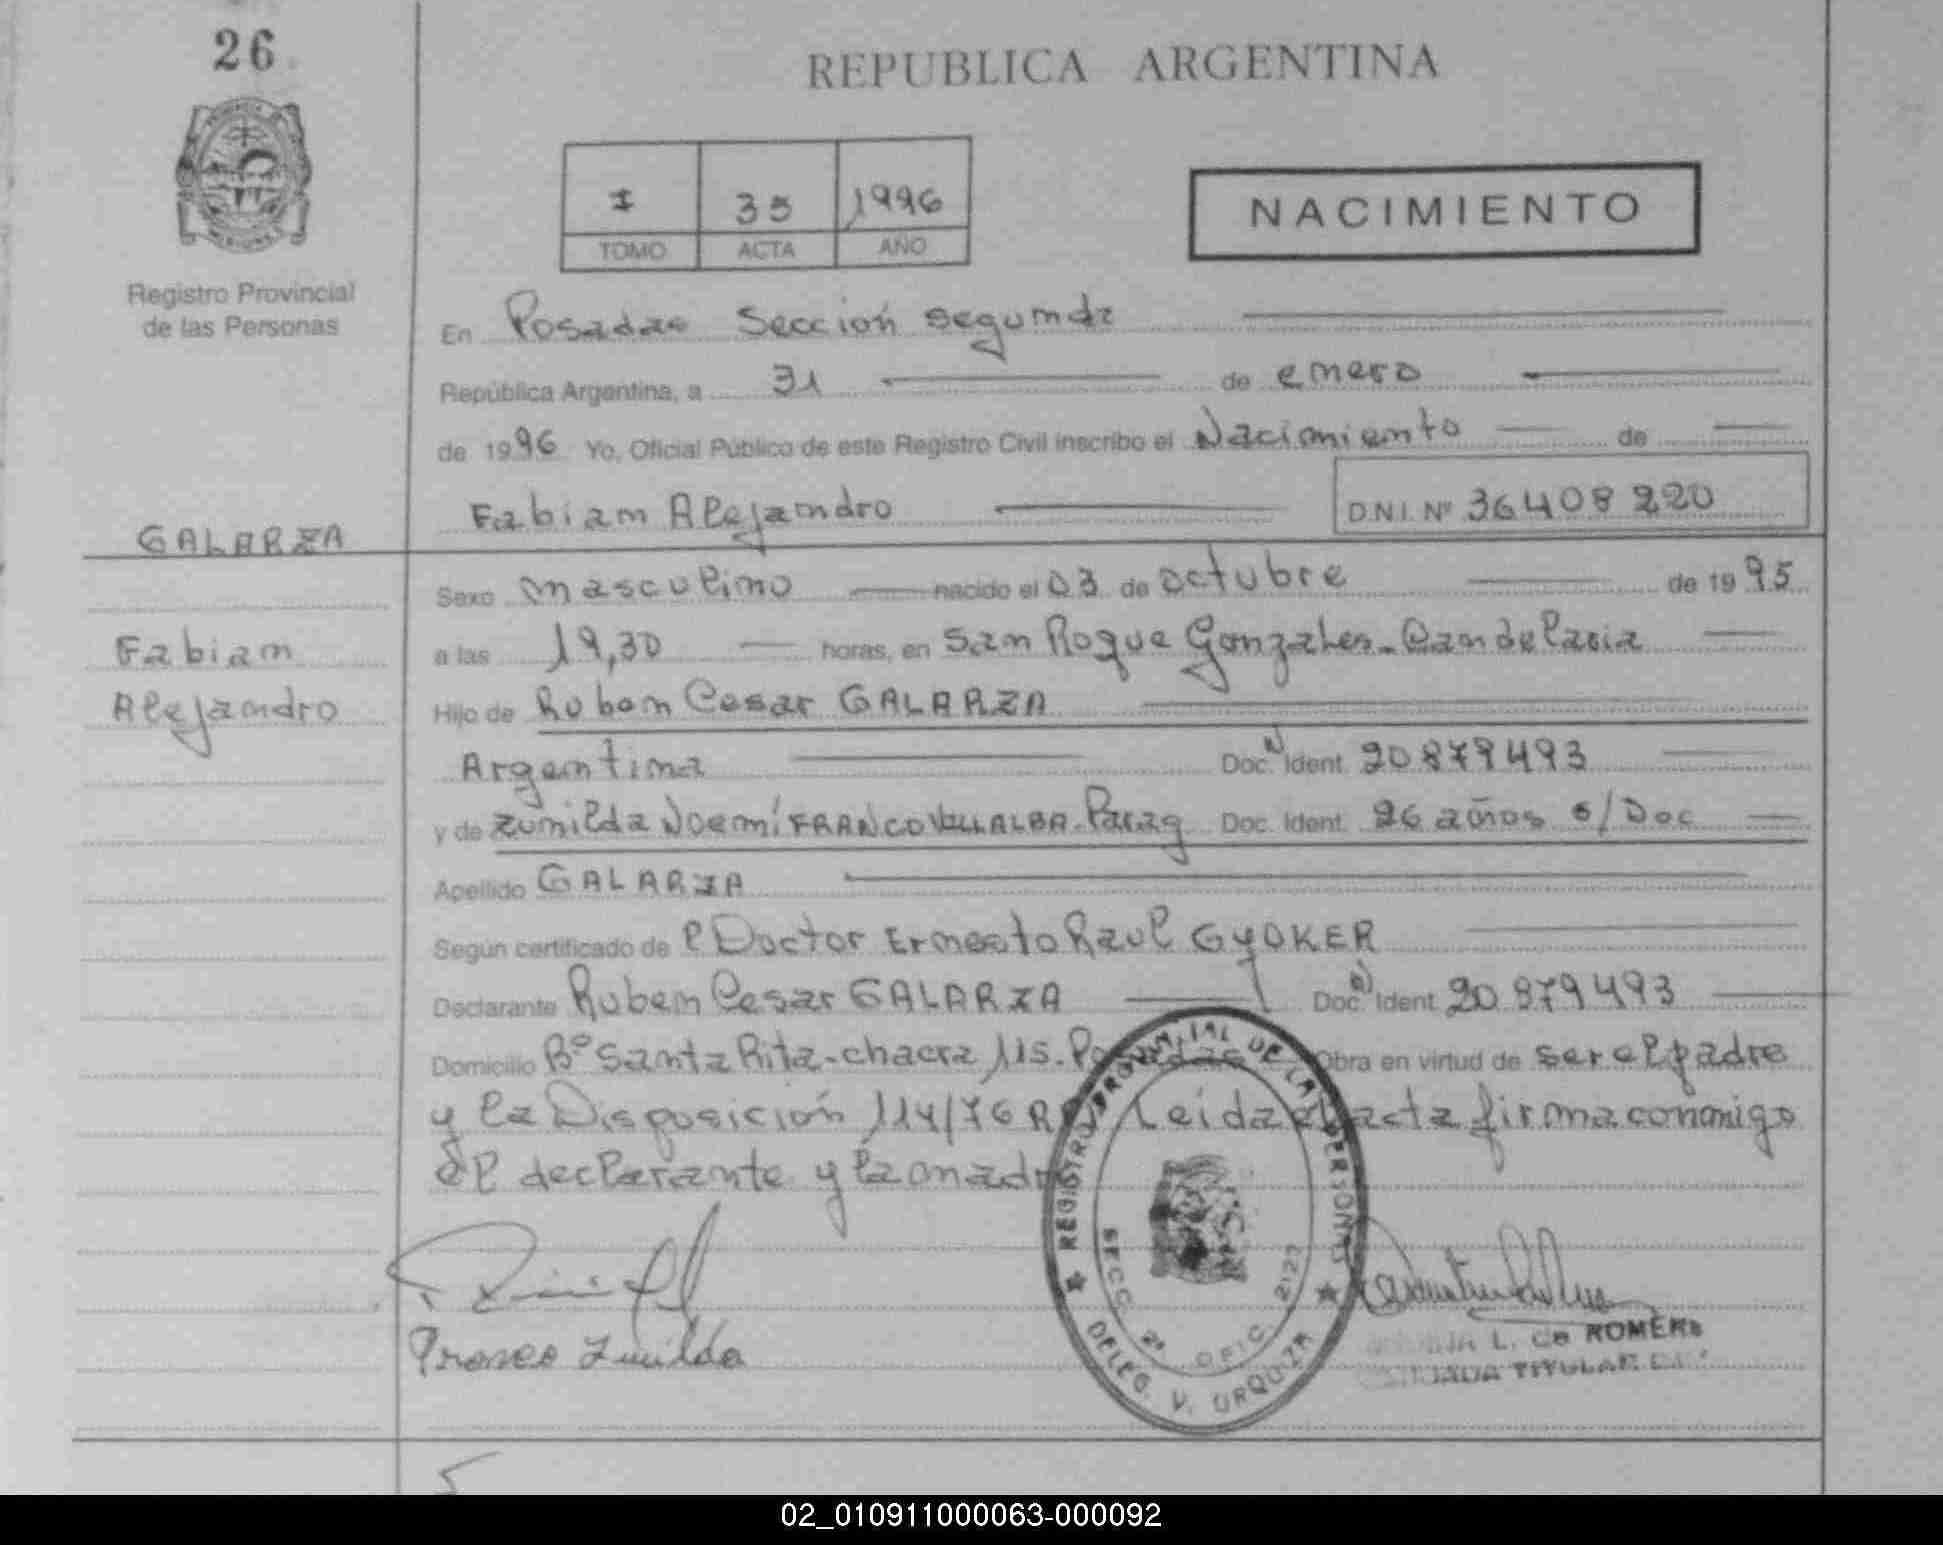 26
REPUBLICA ARGENTINA
I 35 1996
TOMO ACTA AÑO
NACIMIENTO
Registro Provincial
de las Personas
En Posadas Sección Segunda
República Argentina, a 31 de enero
de 1996 Yo, Oficial Público de este Registro Civil inscribo el Nacimiento de
Fabian Alejandro D.N.I. Nº 36408220
GALARZA
Fabian
Alejandro
Sexo masculino nacido el 03 de octubre de 1995
a las 19,30 horas, en San Roque Gonzales-Candelaria
Hijo de Ruben Cesar GALARZA
Argentina Doc. Ident. 20879493
y de Zunilda Noemí FRANCO VILLALBA-Parag Doc. Ident. 26 años s/Doc
Apellido GALARZA
Según certificado de l Doctor Ernesto Raul GYOKER
Declarante Ruben Cesar GALARZA Doc. Ident 20879493
Domicilio Bº Santa Rita-chacra 115. Posadas Obra en virtud de ser el padre
y la Disposición 114/76 Leida el acta firma conmigo
el declarante y la madre
REGISTRO PROVINCIAL DE LAS PERSONAS
SECC. 2ª OFIC. 2122
DELEG. V. URQUIZA
Franco Zunilda
L. de ROMERO
TITULAR
02_010911000063-000092